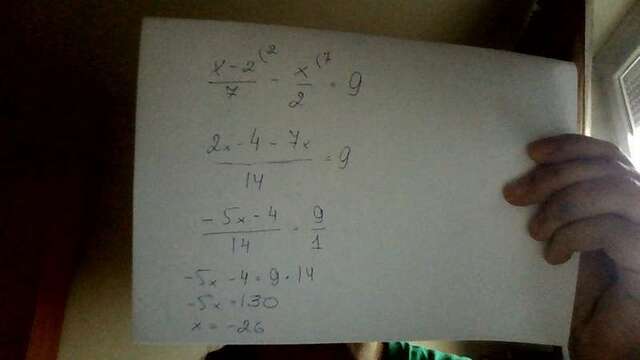 x-2(2/7 - x(7/2 = 9
2x-4-7x/14 = 9
-5x-4/14 = 9/1
-5x-4=9·14
-5x=130
x=-26